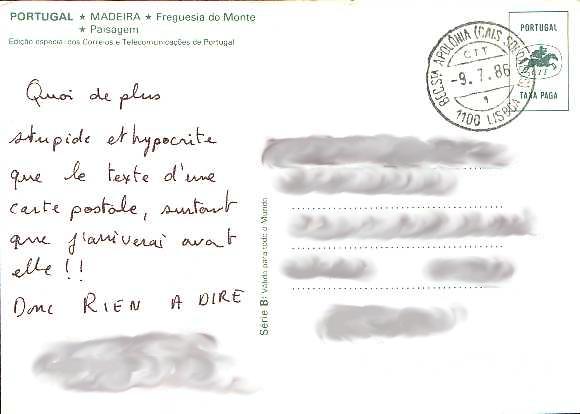 PORTUGAL ★ MADEIRA ★ Freguesia do Monte
★ Paisagem
Edição especial dos Correios e Telecomunicações de Portugal
Quoi de plus
stupide et hypocrite
que le texte d'une
carte postale, surtout
que j'arriverai avant
elle !!
Donc RIEN A DIRE
Série B: Válido para todo o Mundo
APOLÓNIA (CAIS
CTT
-9.7.86
1
1100 LISBOA
PORTUGAL
CTT
TAXA PAGA